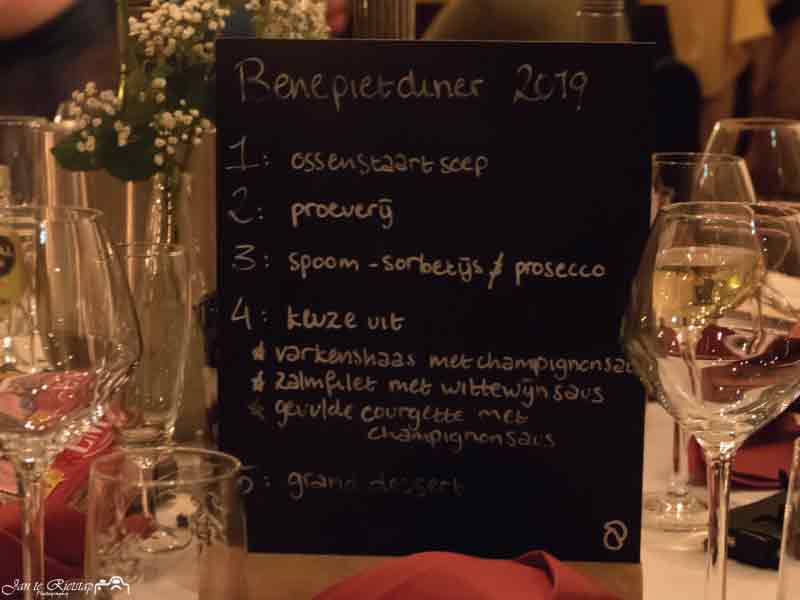 Benepietdiner 2019
1: ossenstaartsoep
2: proeverij
3: spoom - sorbetijs & prosecco
4: keuze uit
* varkenshaas met champignonsau
* zalmfilet met wittewijnsaus
* gevulde courgette met
champignonsaus
5: grand dessert
Jan te Rietstap
Photography